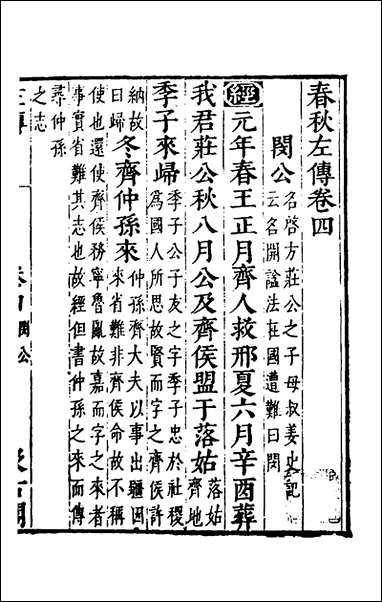 春秋左傳卷四
閔公
名啓方莊公之子母叔姜史記
云名開謚法在國遭難曰閔
經元年春王正月齊人救邢夏六月辛酉葬
我君莊公秋八月公及齊侯盟于落姑
落姑
齊地
季子來歸
季子公子友之字季子忠於社稷
為國人所思故賢而字之齊侯許
納故
曰歸
冬齊仲孫來
仲孫齊大夫以事出疆因
來省難非齊侯命故不稱
使也還使齊侯務寧魯亂故嘉而字之來者
事實省難其志也故經但書仲孫之來而傳
尋仲孫
之志
閔公